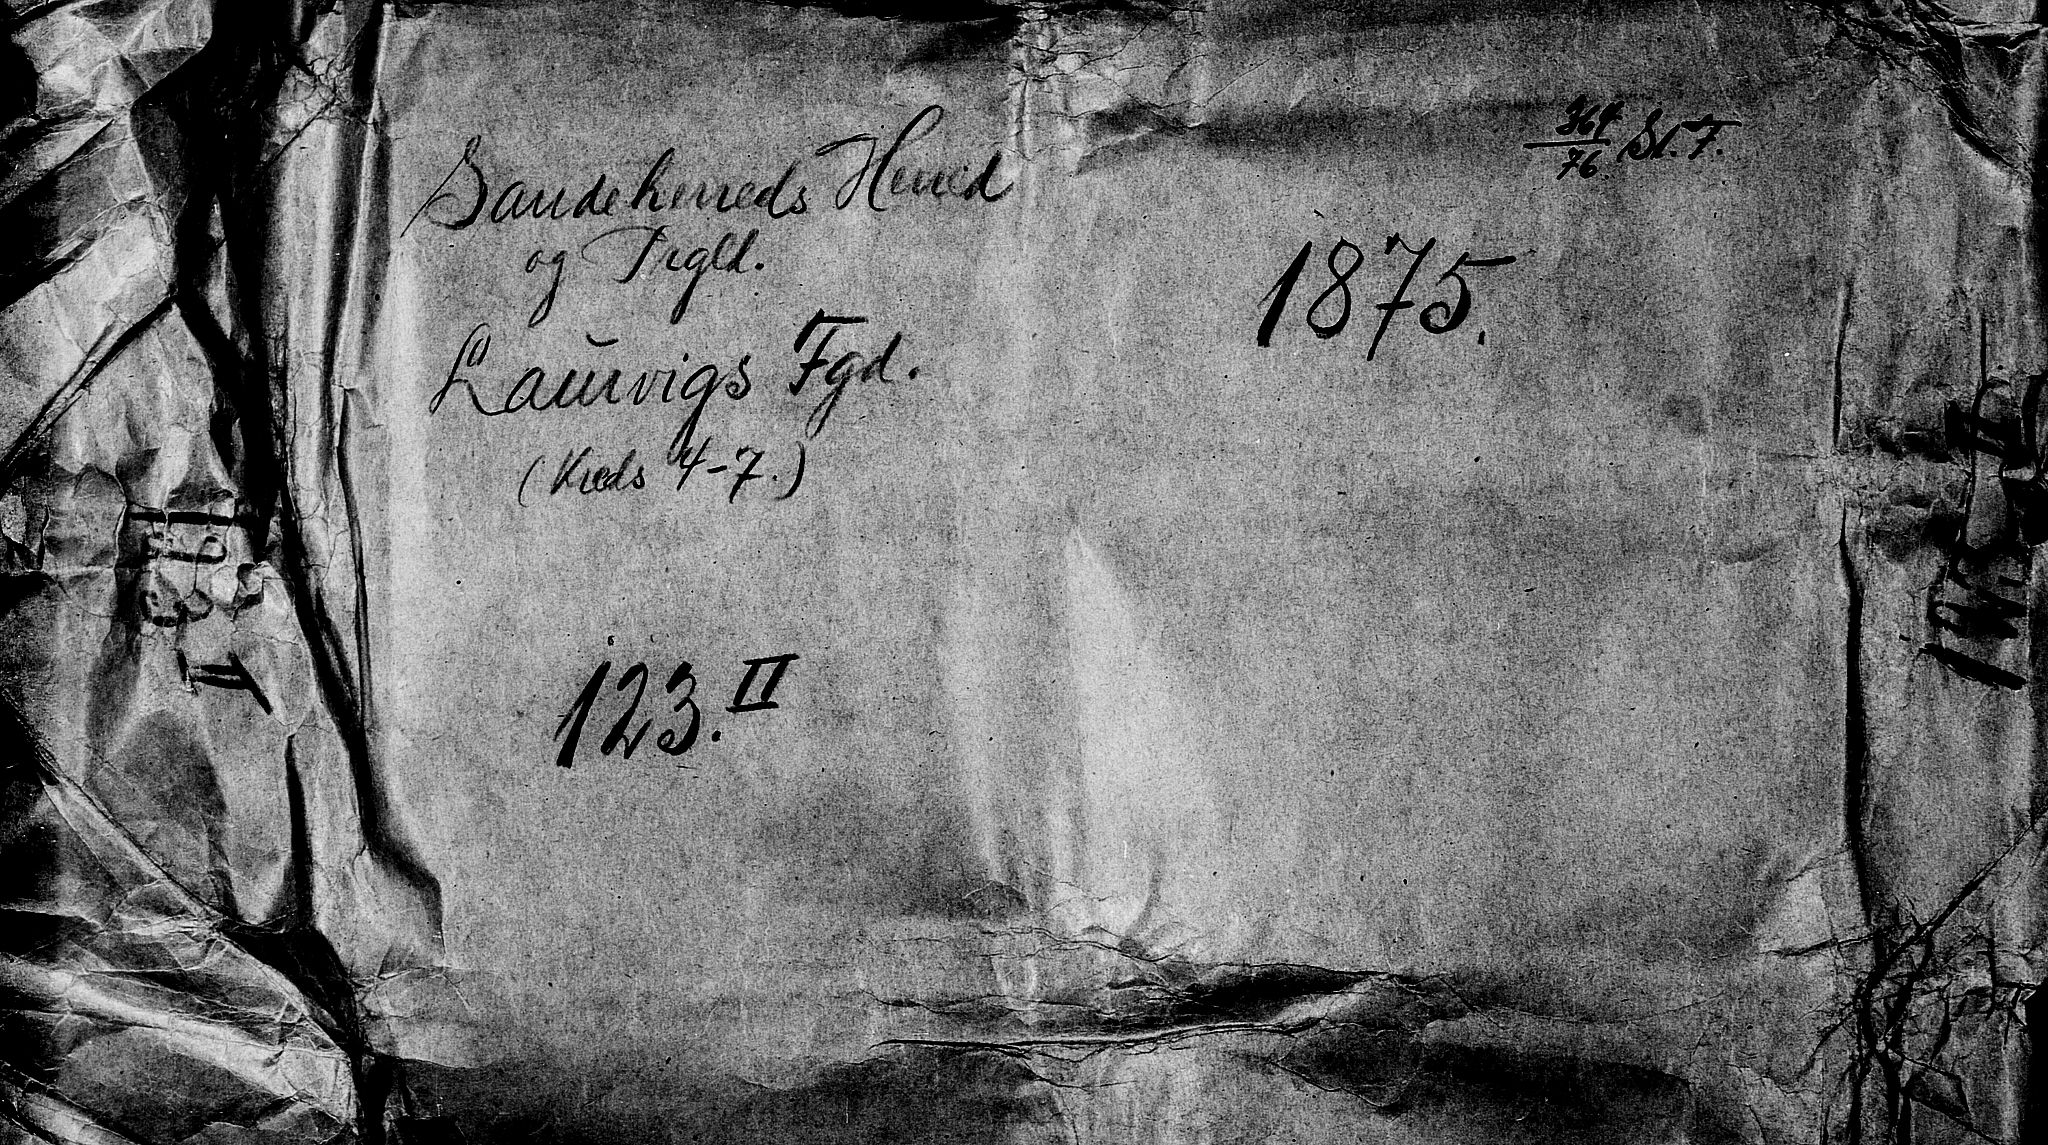 Sandeherreds Herred
og Prgld.
Laurvigs Fgd.
(Kreds 4-7.)
123. II
364
76. St. F.
1875.
123
II
123. II